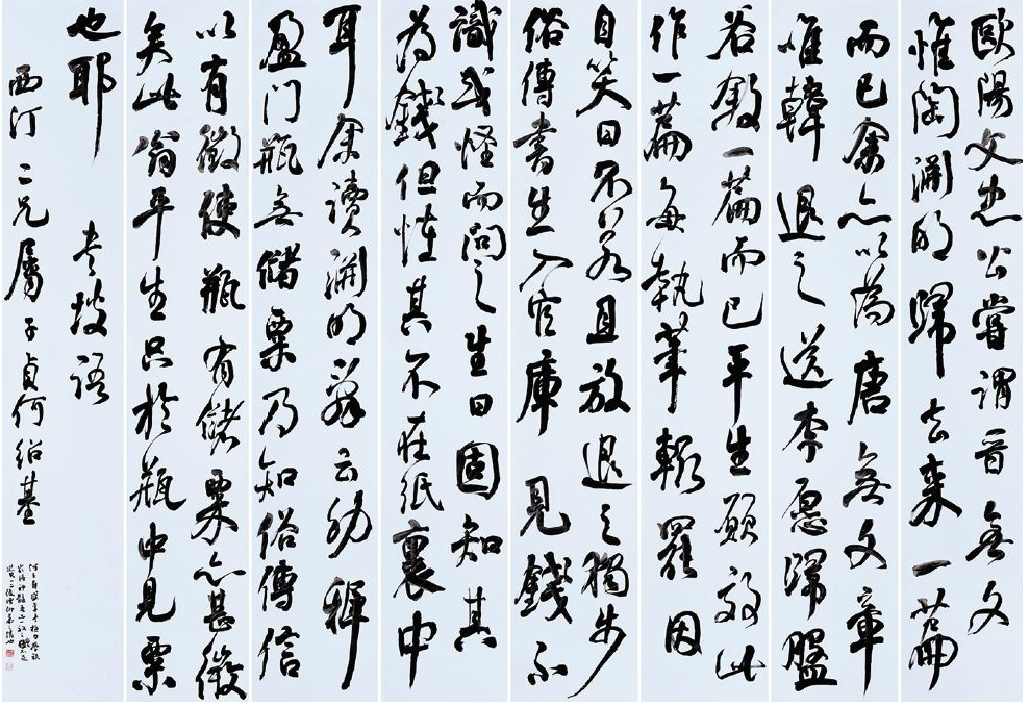 歐陽文忠公嘗謂晉無文
惟陶淵明歸去來一篇
而已余亦以為唐無文章
唯韓退之送李愿歸盤
谷敘一篇而已平生願效此
作一篇每執筆輒罷因
自笑曰不若且放退之獨步
俗傳書生入官庫見錢不
識或怪而問之生曰固知其
為錢但怪其不在紙裹中
耳余讀淵明辭云幼稚
盈門瓶無儲粟乃知俗傳信
以有徵使瓶有儲粟亦甚微
矣此翁平生只於瓶中見粟
也耶 東坡語
西汀二兄屬 子貞何紹基